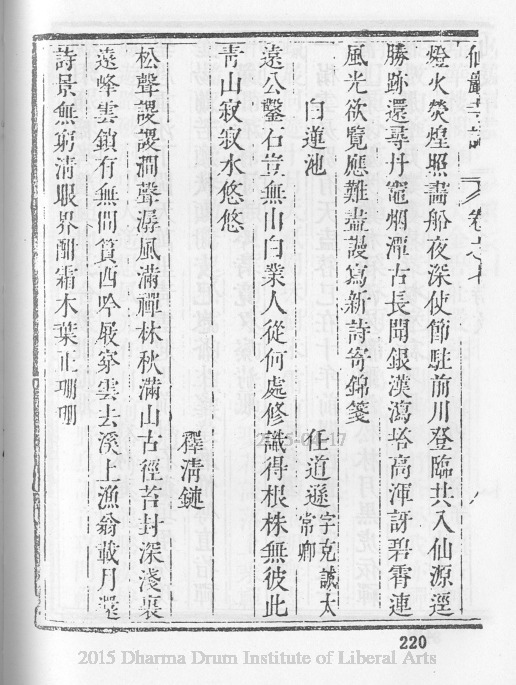 仙巖寺誌 卷之七
燈火熒煌照畵船夜深使節駐前川登臨共入仙源逕
勝跡還尋丹竈烟潭古長聞銀漢瀉塔高渾訝碧霄連
風光欲覽應難盡謾寫新詩寄錦箋
白蓮池 任道遜 字克誠太常卿
遠公鑿石豈無山白業人從何處修識得根株無彼此
靑山寂寂水悠悠
釋淸鏈
松聲謖謖澗聲潺風滿禪林秋滿山古徑苔封深淺裏
遠峰雲鎖有無間 西吟屐穿雲去溪上漁翁載月還
詩景無窮淸眼界酣霜木葉正珊珊
220
2015 Dharma Drum Institute of Liberal Arts